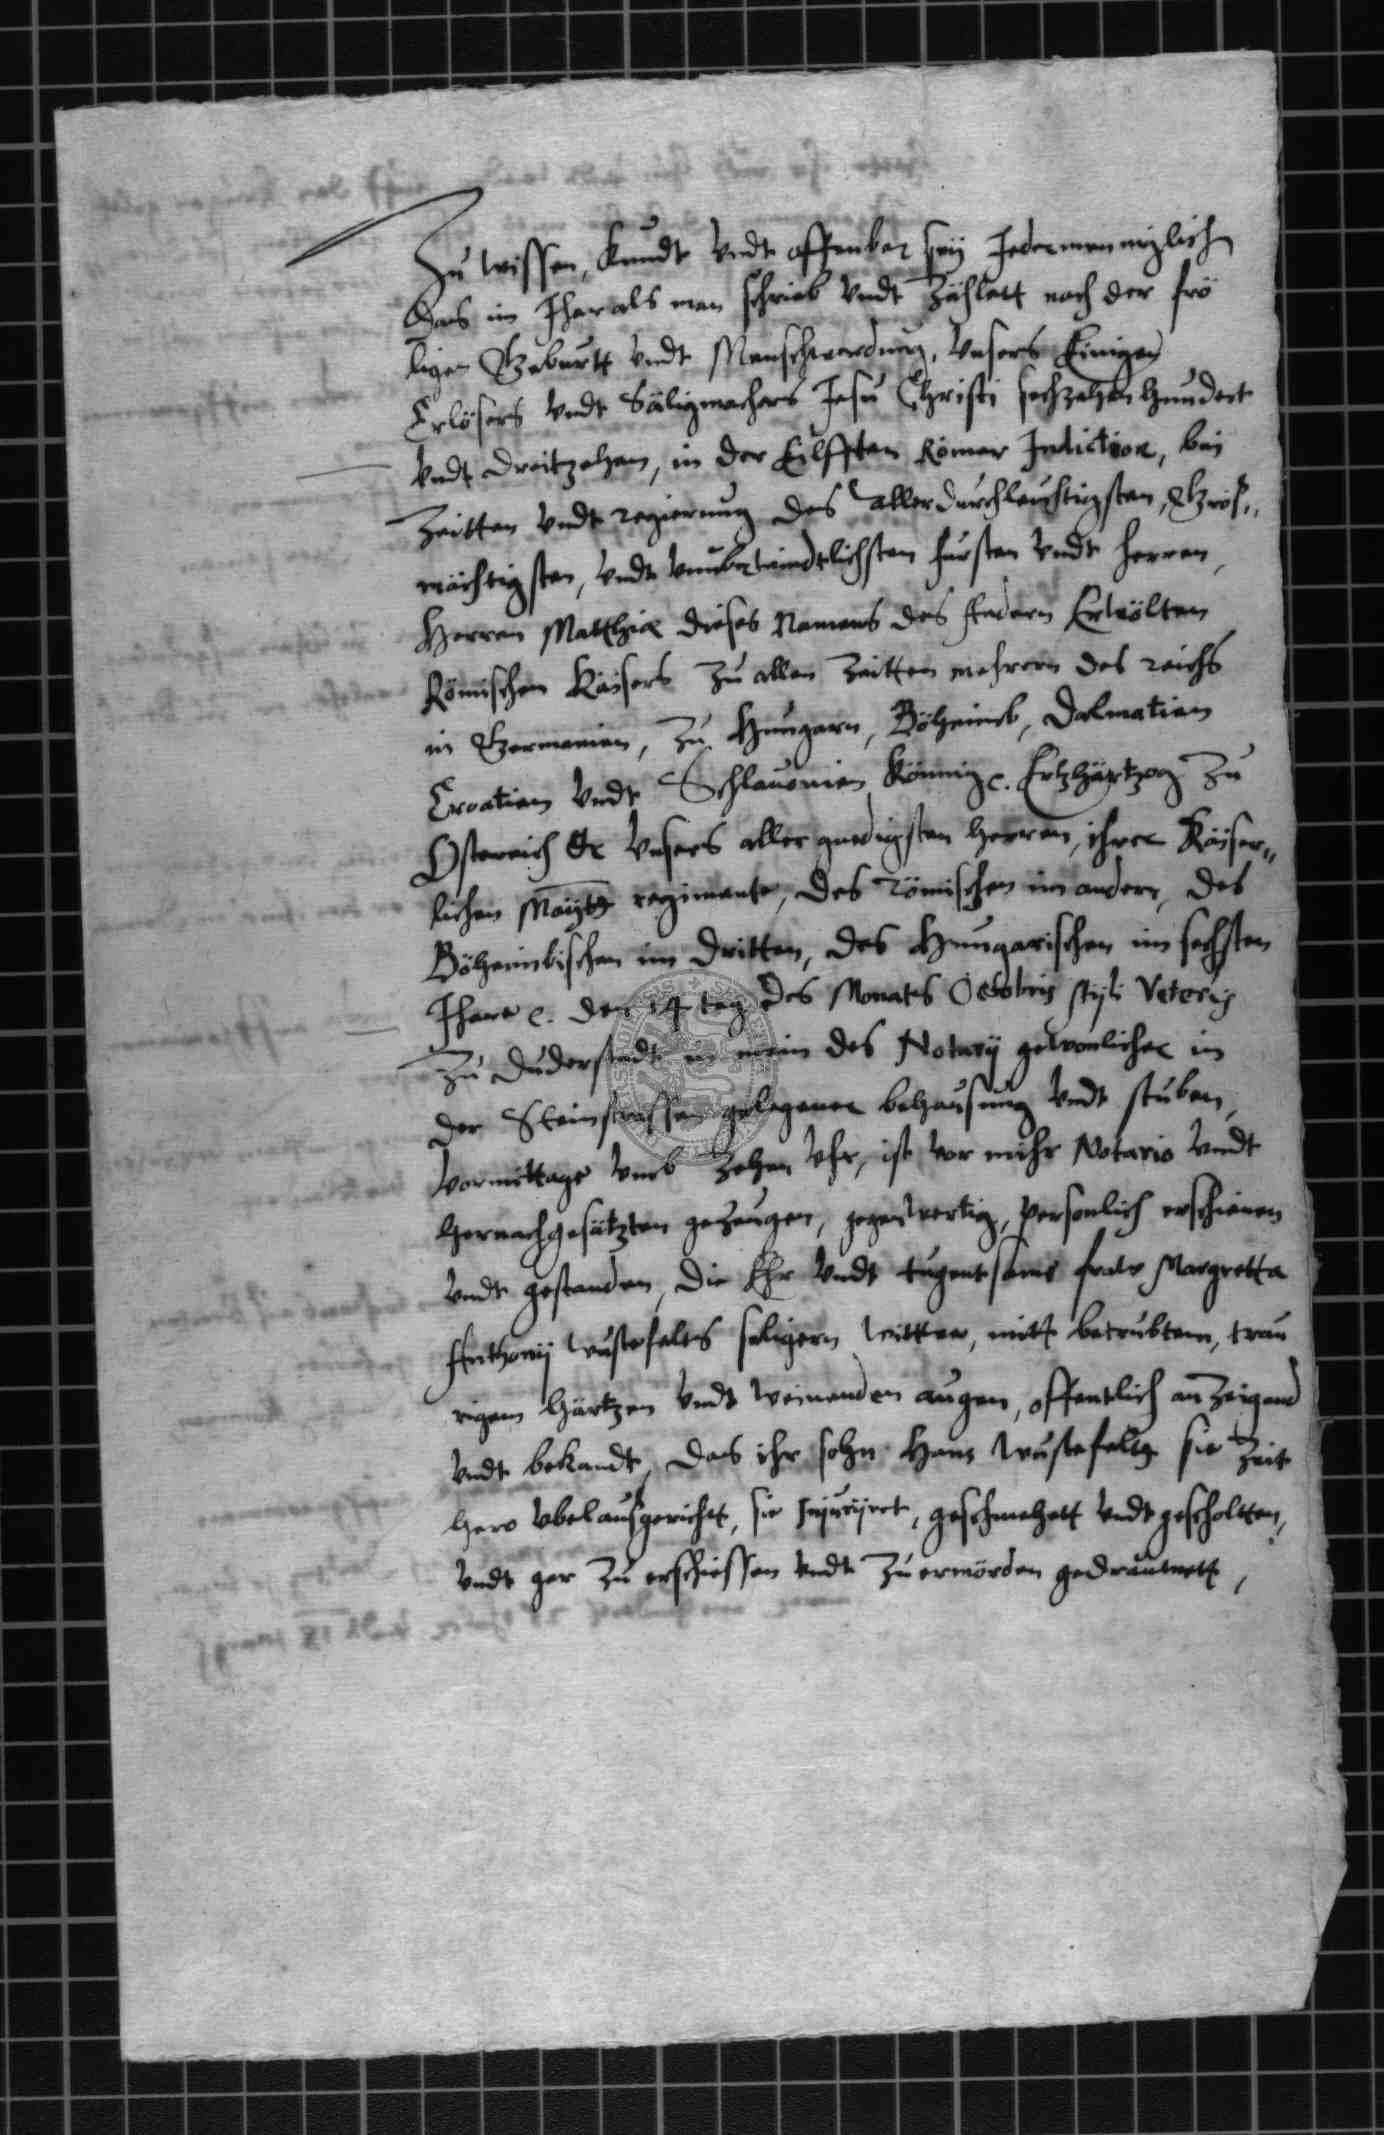 Zu wissen, kundt vndt offenbar seÿ Jedermenniglich
das im Jhar als man schrieb vndt Zählett nach der frö
ligen Geburtt vndt Menschwerdung, Vnsers Einigen
Erlösers vndt Säligmachers Jesu Christi sechzehen hundert
vndt dreitzehen, in der Eilfften Römer Indiction, bei
Zeitten vndt regierung des allerdurchleuchtigsten, Gros„
mächtigsten, vndt vnuberwindtlichsten fursten vndt herren,
Herren Matthiæ dieses Namens des Andern Erwölten
Römischen Kaisers zu allen Zeitten mehrern des reichs
in Germanien, zu Hungarn, Böheimb, Dalmatien
Croatien vndt Schlauonien Könnig c. Ertzhärtzog zu
Ostereich &c Vnsers aller gnedigsten herren, ihrer Käiser„
lichen Maÿtt regimente, des Römischen im andern, des
Böheimbischen im dritten, des Hungarischen im sechsten
Jhare c. den 14 tag des Monats Octobris stÿli Veteris
Zu Duderstadt in mein des Notarÿ gewonlicher in
der Steinstrassen gelegener behausung vndt stuben,
vormittage vmb Zehen Vhr, ist vor mihr Notario vndt
hernachgesätzten gezeugen, gegenwertig, personlich erschienen
vndt gestanden, die Ehr vndt tugentsame fraw Margretta
Anthonÿ Wustefelts seligern wittwe, mitt betrubtem, trau
rigem härtzen vndt weinenden augen, offentlich anzeigend
vndt bekandt, das ihr sohn Hans Wustefeltt sie Zeit
hero vbel ausgericht, sie Injurÿret, geschmehett vndt gescholtten,
vndt gar zu erschiessen vndt zu ermörden gedrauwett,